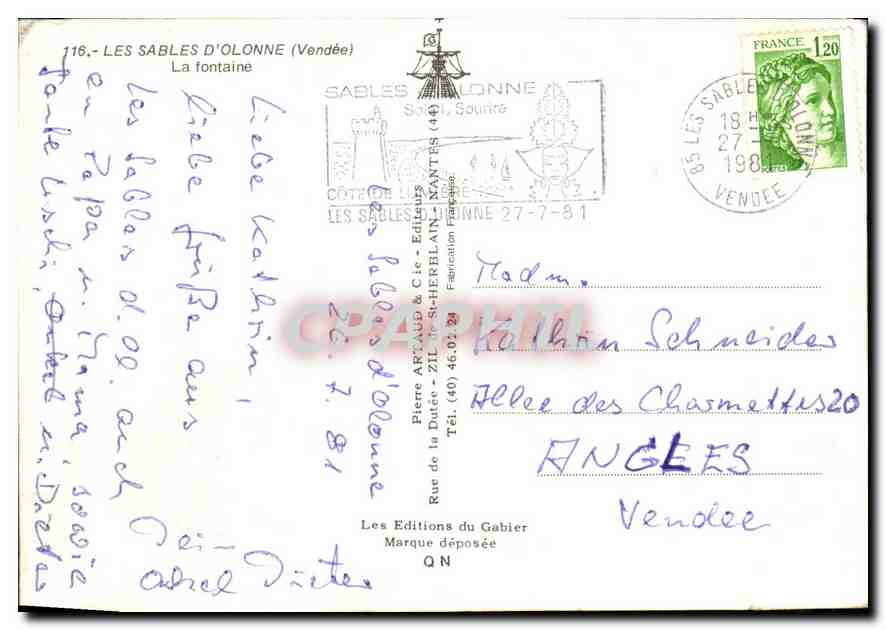 116.- LES SABLES D'OLONNE (Vendée)
La fontaine
SABLES D'OLONNE
Soleil, Sourire
CÔTE DE LUMIÈRE
LES SABLES D'OLONNE 27-7-81
FRANCE 1,20
85 LES SABLES D'OLONNE
18 H
27 -
1981
VENDEE
Les Sables d'Olonne
26. 7. 81
Liebe Kathrin!
Liebe Grüße aus
Les Sables d. Ol. auch
an Papa u. Mama sowie
Tante Uschi, Onkel u. Dieter
Dein
Onkel Dieter
Pierre ARTAUD & Cie - Editeurs
Rue de la Dutée - ZIL de St-HERBLAIN - NANTES (44)
Tél. (40) 46.01.24 Fabrication Française
CPAPHIL
Madm.
Kathrin Schneider
Allee des Charmettes 20
ANGLES
Vendee
Les Editions du Gabier
Marque déposée
QN